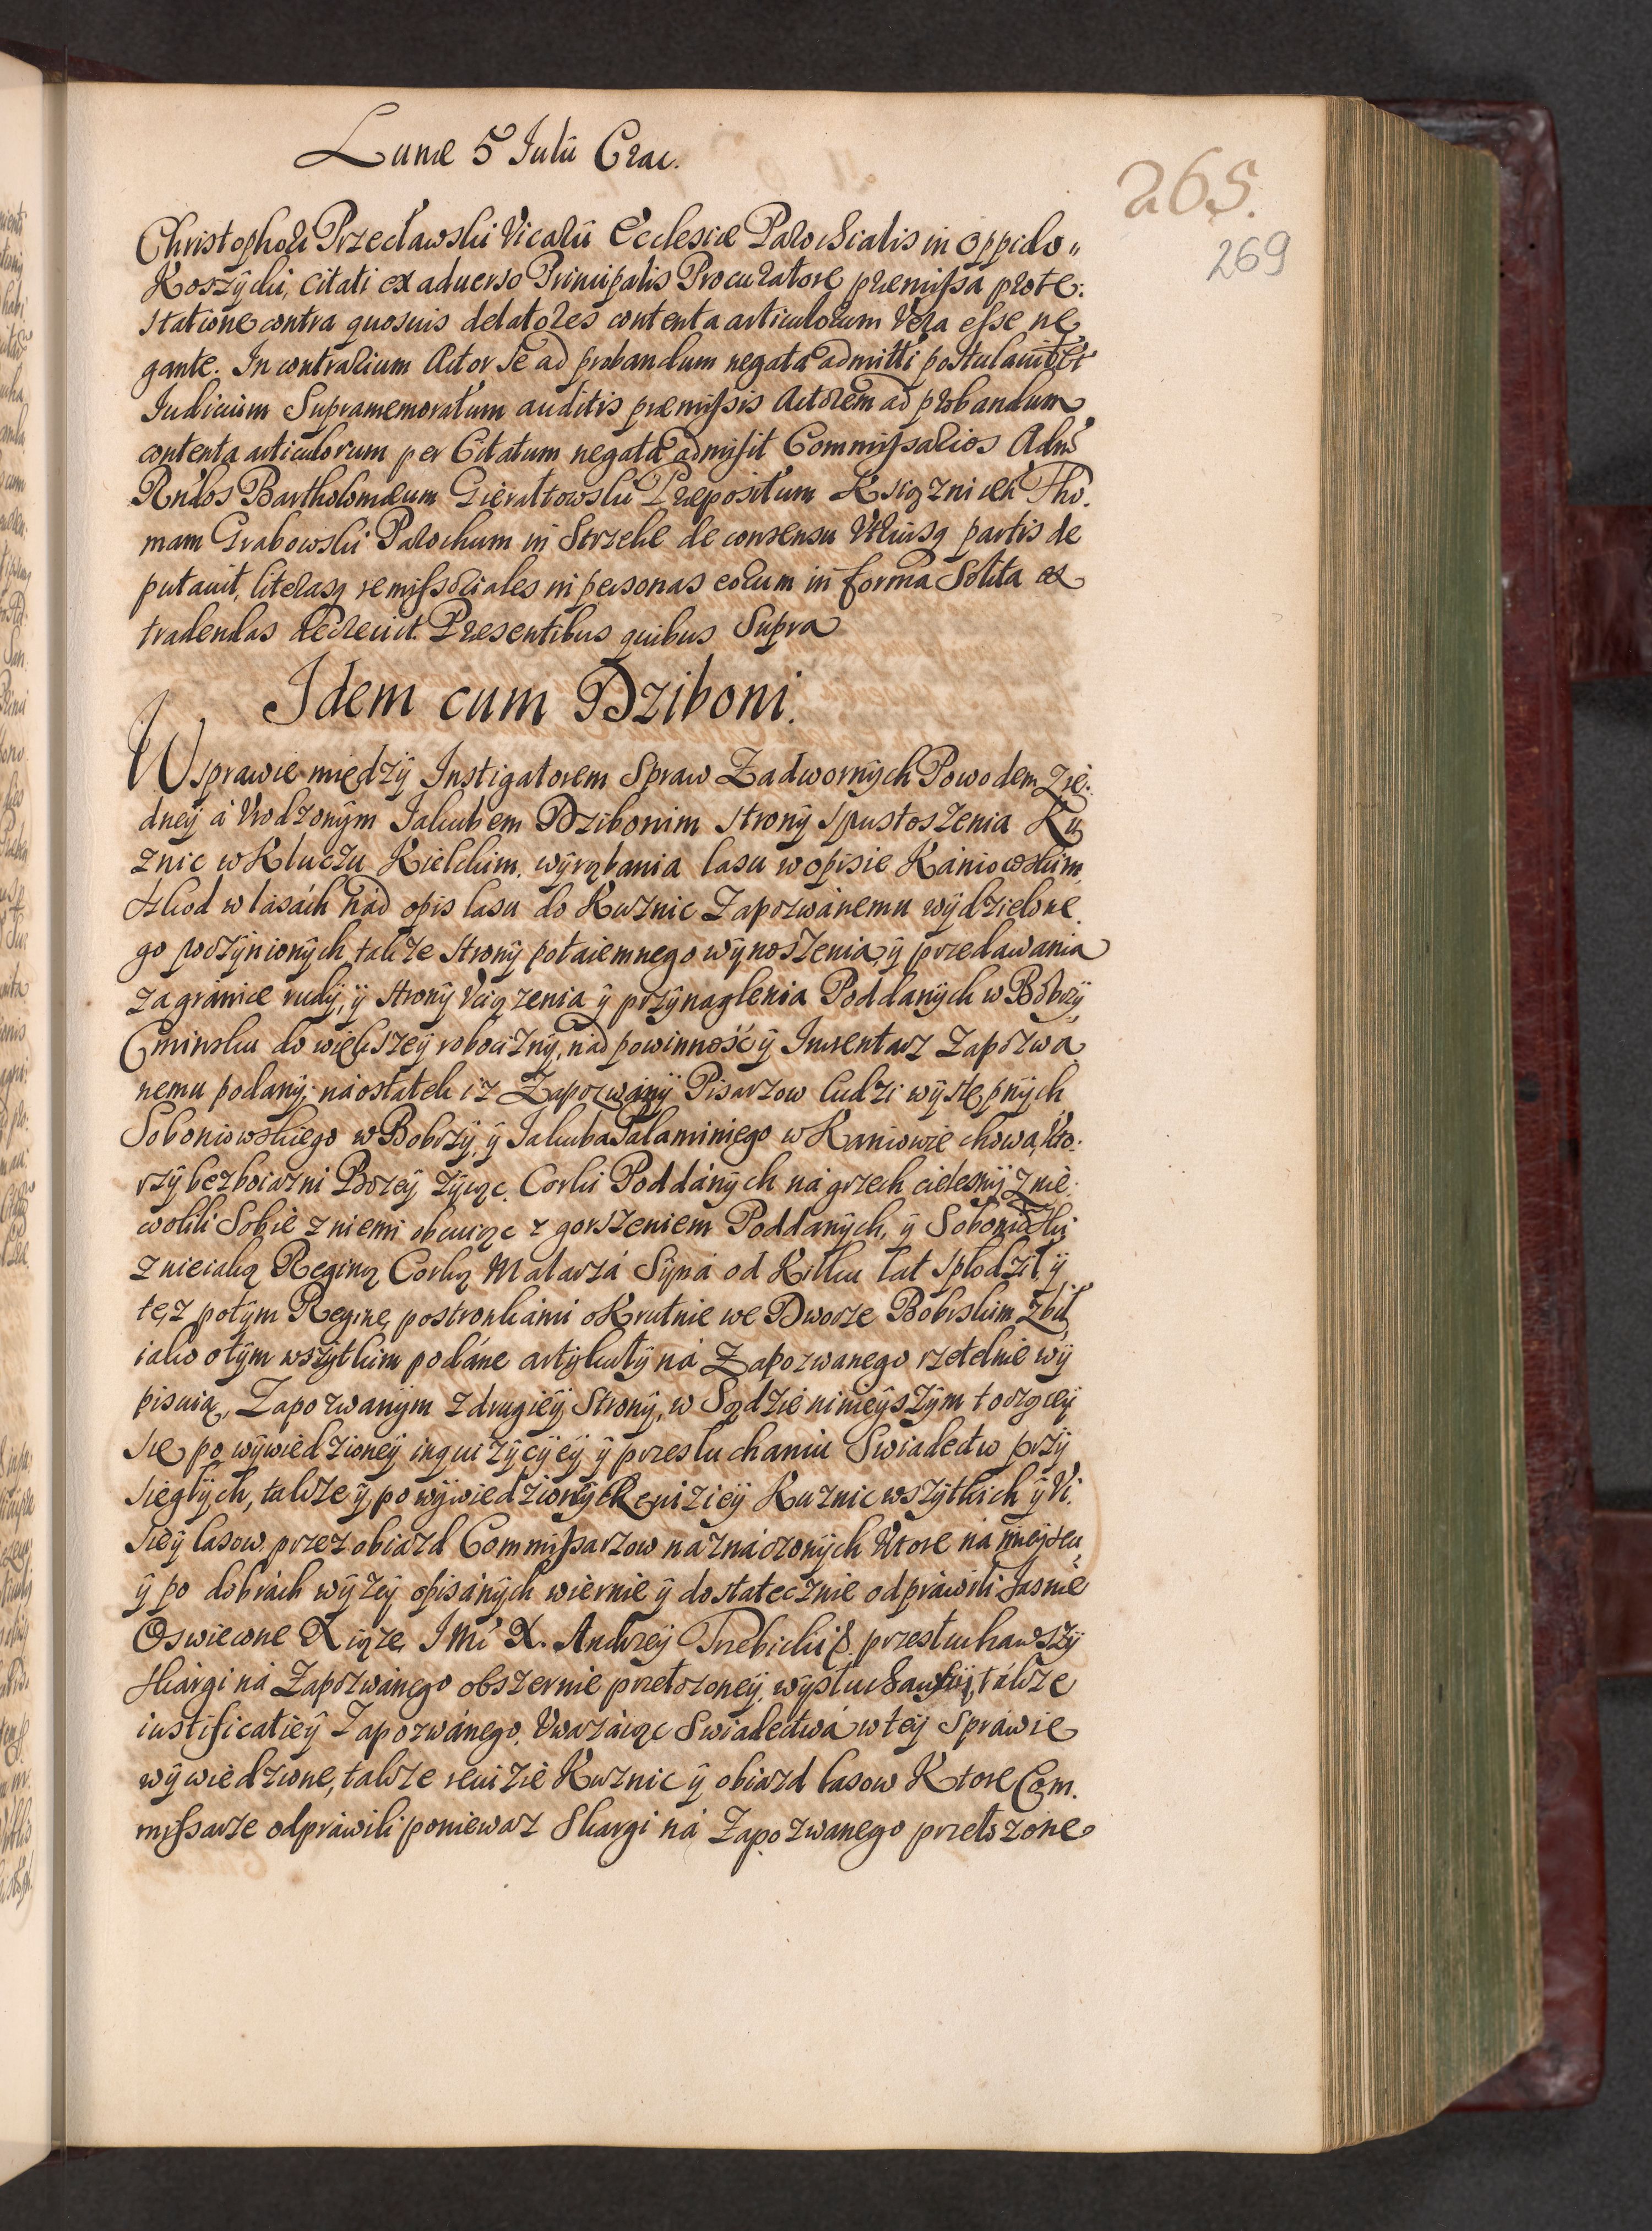 Lunæ 5 Iulii Crac.
265.
269
Christophori Przecławski Vicarii Ecclesiæ Parochialis in oppido
Koszycki, citati ex aduerso Principalis Procuratore præmissa prote:
statione contra quosuis delatores contenta articulorum Vera esse ne
gante. In contrarium Actor se ad probandum negata admitti postulauit Et
Iudicium Supramemoratum auditis præmissis Actorem ad probandum
contenta articulorum per Citatum negata admisit Commissarios Adm
Rndos Bartholomæum Gierałtowski Præpositum Ksiąznicen Tho.
mam Grabowski Parochum in Strzelce de consensu Vtriusq partis de
putauit, literasq remissoriales in personas eorum in forma Solita ex
tradendas decreuit. Præsentibus quibus Supra
Idem cum Dziboni.
W sprawie między Instigatorem Spraw Zadwornych Powodem z ie:
dney á Vrodzonym Iakubem Dzibonim strony spustoszenia Ku
znic w Kluczu Kielckim, wyrąbania lasu w opisie Kániowskim,
szkod w lásách nád opis lasu do Kuznic Zapozwánemu wydzielone
go poczynionych, także strony potaiemnego wynoszenia, y przedawania
za gránice rudy, y strony Vciązenia y przynaglenia Poddanych w Bobrzy
Cminsku do większey robocizny, nád powinność y Inwentarz Zapozwá
nemu podany; ná ostatek iż Zapozwány Pisarzow ludzi występnych
Soboniowskiego w Bobrzy, y Iakuba Palaminiego w Kaniowie chowa, kto:
rzy bez boiazni Bozey żyiąc, Corki Poddánych ná grzech cielesny znie:
wolili Sobie z niemi obcuiąc z gorszeniem Poddanych, y Soboniowski
z nieiaką Reginą Corką Malarzá Syná od Kilku lat spłodził y
tęz potym Reginę postronkámi okrutnie we Dworze Bobrskim zbił
iako o tym wszytkim podáne artykuły ná Zapozwanego rzetelnie wy
pisuią, Zapozwanym z drugiey Strony, w Sądzie ninieyszym toczącey
się po wywiedzioney inquizycyey y przesłuchaniu Swiadectw przy
sięgłych, także y po wywiedzioney Reuiziey Kuznic wszytkich y Vi
siey lasow przez obiazd Commissarzow náznáczonych ktore ná mieyscu
y po dobrách wyżey opisánych wiernie y dostatecznie odpráwili Iasnie
Oswiecone Xiąże Imć X. Andrzey Trzebicki B. przesłuchawszy
skárgi ná Zapozwánego obszernie przełozoney, wysłuchawszy tákże
iustificatiey Zapozwánego, Vważáiąc Swiadectwá w tey Spráwie
wywiedzione, także reuizie Kuznic y obiazd lasow Ktore Com.
missarze odpráwili poniewasz Skargi ná Zapozwanego przełozone